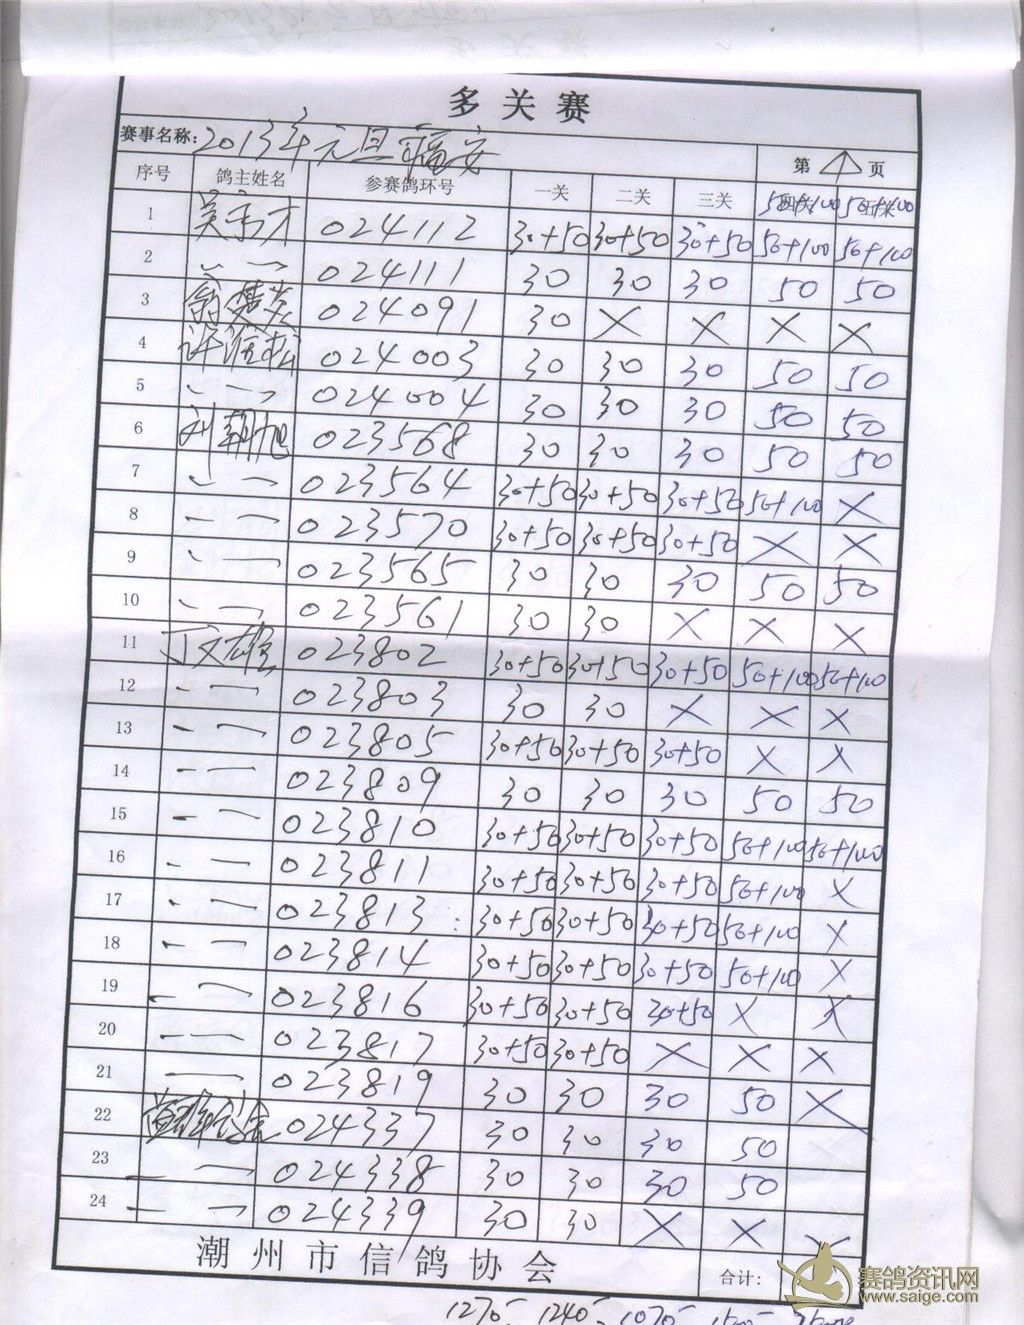 多关赛
赛事名称: 2013年元旦福安 第 页
序号 鸽主姓名 参赛鸽环号 一关 二关 三关 50+100 50+100
1 024112 30+50 30+50 30+50 50+100 50+100
2 〃 一 024111 30 30 30 50 50
3 024091 30 X X X X
4 024003 30 30 30 50 50
5 〃 一 024004 30 30 30 50 50
6 刘朝旭 023568 30 30 30 50 50
7 〃 一 023564 30+50 30+50 30+50 50+100 X
8 〃 一 023570 30+50 30+50 30+50 X X
9 〃 一 023565 30 30 30 50 50
10 〃 一 023561 30 30 X X X
11 丁文雄 023802 30+50 30+50 30+50 50+100 50+100
12 〃 一 023803 30 30 X X X
13 〃 一 023805 30+50 30+50 30+50 X X
14 〃 一 023809 30 30 30 50 50
15 〃 一 023810 30+50 30+50 30+50 50+100 50+100
16 〃 一 023811 30+50 30+50 30+50 50+100 X
17 〃 一 023813 30+50 30+50 30+50 50+100 X
18 〃 一 023814 30+50 30+50 30+50 50+100 X
19 〃 一 023816 30+50 30+50 30+50 X X
20 〃 一 023817 30+50 30+50 X X X
21 〃 一 023819 30 30 30 50 X
22 024337 30 30 30 50
23 〃 一 024338 30 30 30 50
24 〃 一 024339 30 30 X X X
潮州市信鸽协会 合计:
1270- 1240- 1070-
赛鸽资讯网
www.saige.com